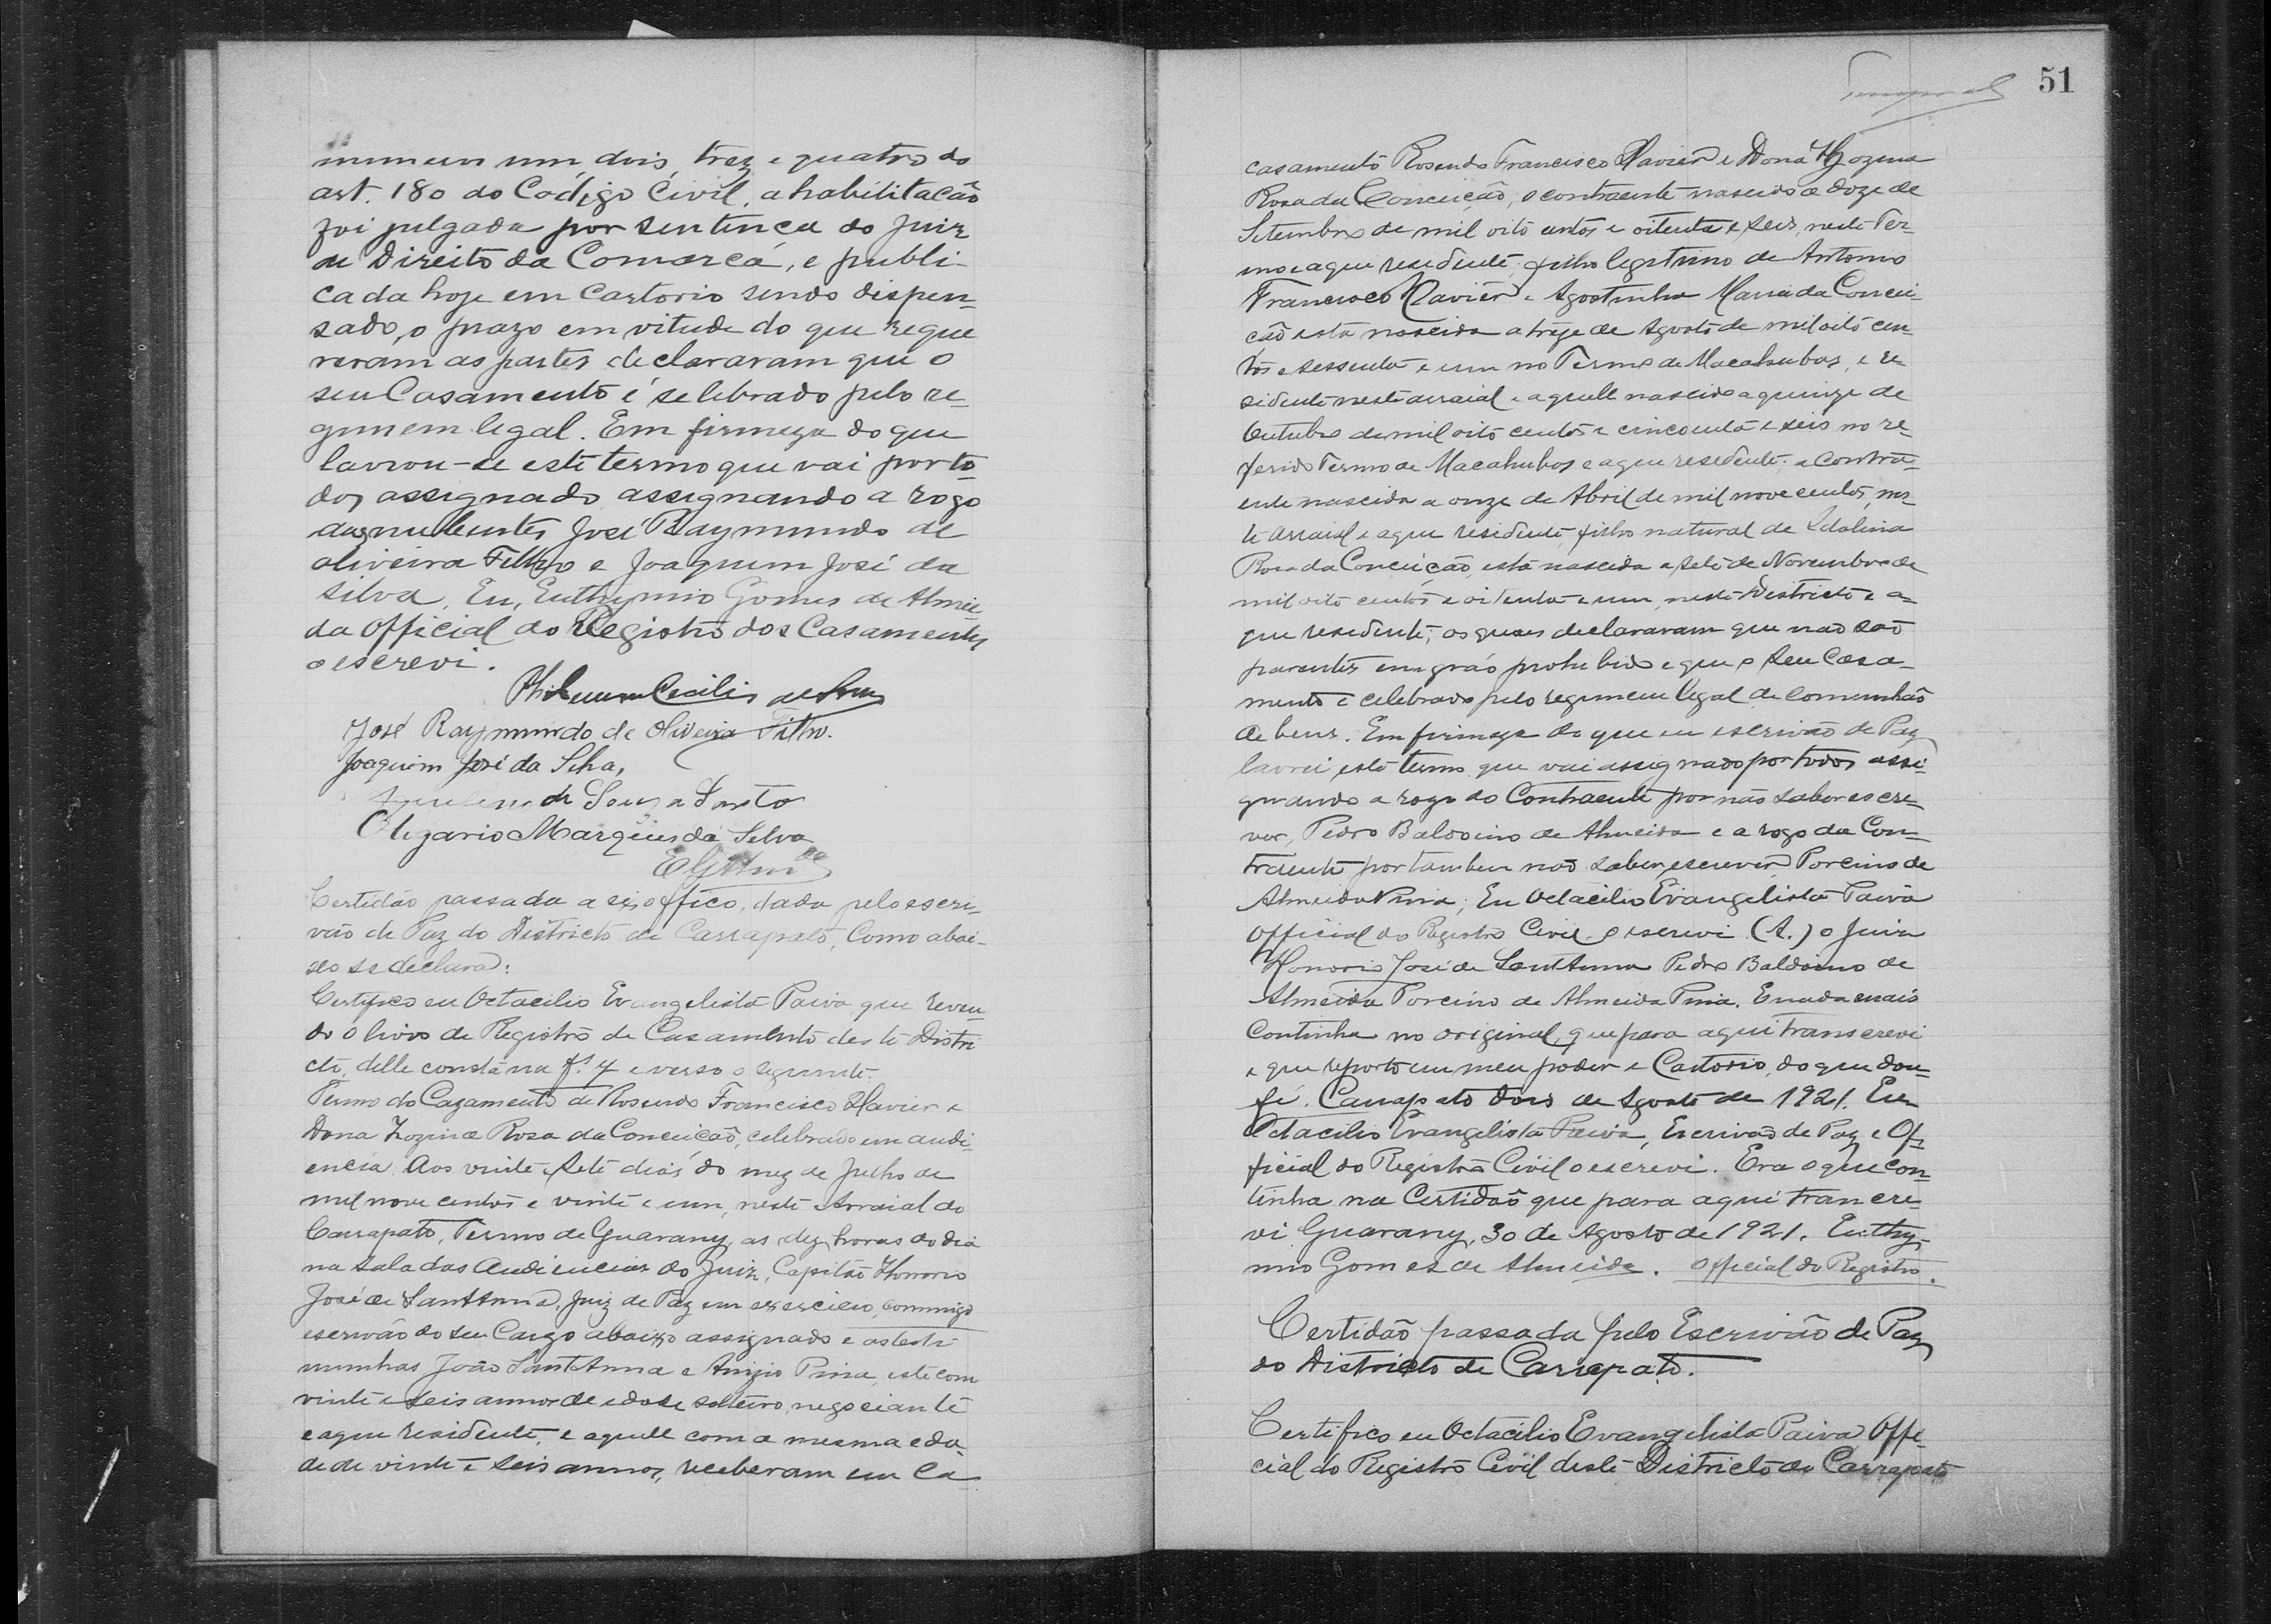 numeros um, dois, trez e quatro do
art. 180 do Codigo Civil, a habilitacão
foi julgada por sentença do Juiz
de Direito da Comarca, e publi-
cada hoje em Cartorio sendo dispen-
sado, o prazo em vitude do que reque
reram as partes declararam que o
seu Casamento é selebrado pelo re-
gimem legal. Em firmeza do que
lavrou-se este termo que vai por to-
dos assignado assignando a rogo
dos nubentes José Raymundo de
oliveira Filho e Joaquim José da
Silva, Eu, Euthymio Gomes de Almei
da Official do Registro dos Casamentos
o escrevi.
José Raymundo de Oliveira Filho.
Joaquim José da Silva,
de Souza
Olegario Marques da Silva
Certidão passada a ex officio, dada pelo escri-
vão de Paz do Districto de Carrapato, Como abai-
xo se declara:
Certifico eu Octacilio Evangelista Paiva, que reven-
do o livro de Registro de Casamento deste Distri
cto, delle consta na fs. 4 e verso o seguinte.
Termo do Cazamento de Rosendo Francisco Xavier e
Dona Zozina Rosa da Conceicão, celebrado em audi-
encia. Aos vinte e sete dias do mez de Julho de
mil nove centos e vinte e um, neste Arraial do
Carrapato, Termo de Guarany, as dez horas do dia
na sala das Audiencias do Juiz, Capitão Honorio
José de SantAnna, Juiz de Paz em exercicio, commigo
escrivão do seu Cargo abaixo assignado e as teste-
munhas João SantAnna e Anizio Pina, este com
vinte e seis annos de edade solteiro, negociante
e aqui residente, e aquelle com a mesma eda-
de de vinte e seis annos, receberam em Ca-
51
casamento Rosendo Francisco Xavier e Dona Zozina
Rosa da Conceição, o contraente nascido a doze de
Setembro de mil oito centos e oitenta e seis, neste Ter-
mo e aqui residente, filho legitimo de Antonio
Francisco Xavier e Agostinha Maria da Concei-
ção esta nascida a treze de Agosto de mil oito cen-
tos e sessenta e um no Termo de Macahubas, e re-
sidente neste arraial e aquelle nascido a quinze de
Outubro de mil oito centos e cincoenta e seis no re-
ferido Termo de Macahubas e aqui residente; a Contra-
ente nascida a onze de Abril de mil nove centos, nes-
te arraial e aqui residente, filha natural de Idalina
Rosa da Conceição, esta nascida a sete de Novembro de
mil oito centos e oitenta e um, neste Districto e a-
qui residente; os quaes declararam que não são
parentes em gráo prohibido e que o seu Casa-
mento é celebrado pelo regimem legal de comunhão
de bens. Em firmeza do que eu escrivão de Paz
lavrei este termo que vai assignado por todos assi-
gnando a rogo do Contraente por não saber escre-
ver, Pedro Baldoino de Almeida e a rogo da Con-
traente por tambem não saber escrever Porcino de
Almeida Pina; Eu Octacilio Evangelista Paiva
Official do Registro Civil o escrevi (A.) o Juiz
Honorio José de SantAnna Pedro Baldoino de
Almeida Porcino de Almeida Pina. E nada mais
Continha no original, que para aqui transcrevi
e que reporto em meu poder e Cartorio, do que dou
fé. Carrapato dois de Agosto de 1921. Eu
Octacilio Evangelista Paiva, Escrivão de Paz e Of-
ficial do Registro Civil o escrevi. Era o que con-
tinha na Certidaõ que para aqui trancre-
vi Guarany, 30 de Agosto de 1921. Euthy-
mio Gomes de Almeida. Official do Registro.
Certidaõ passada pelo Escrivão de Paz
do Districto de Carrapato.
Certifico eu Octacilio Evangelista Paiva Offi-
cial do Registro Civil deste Districto do Carrapato